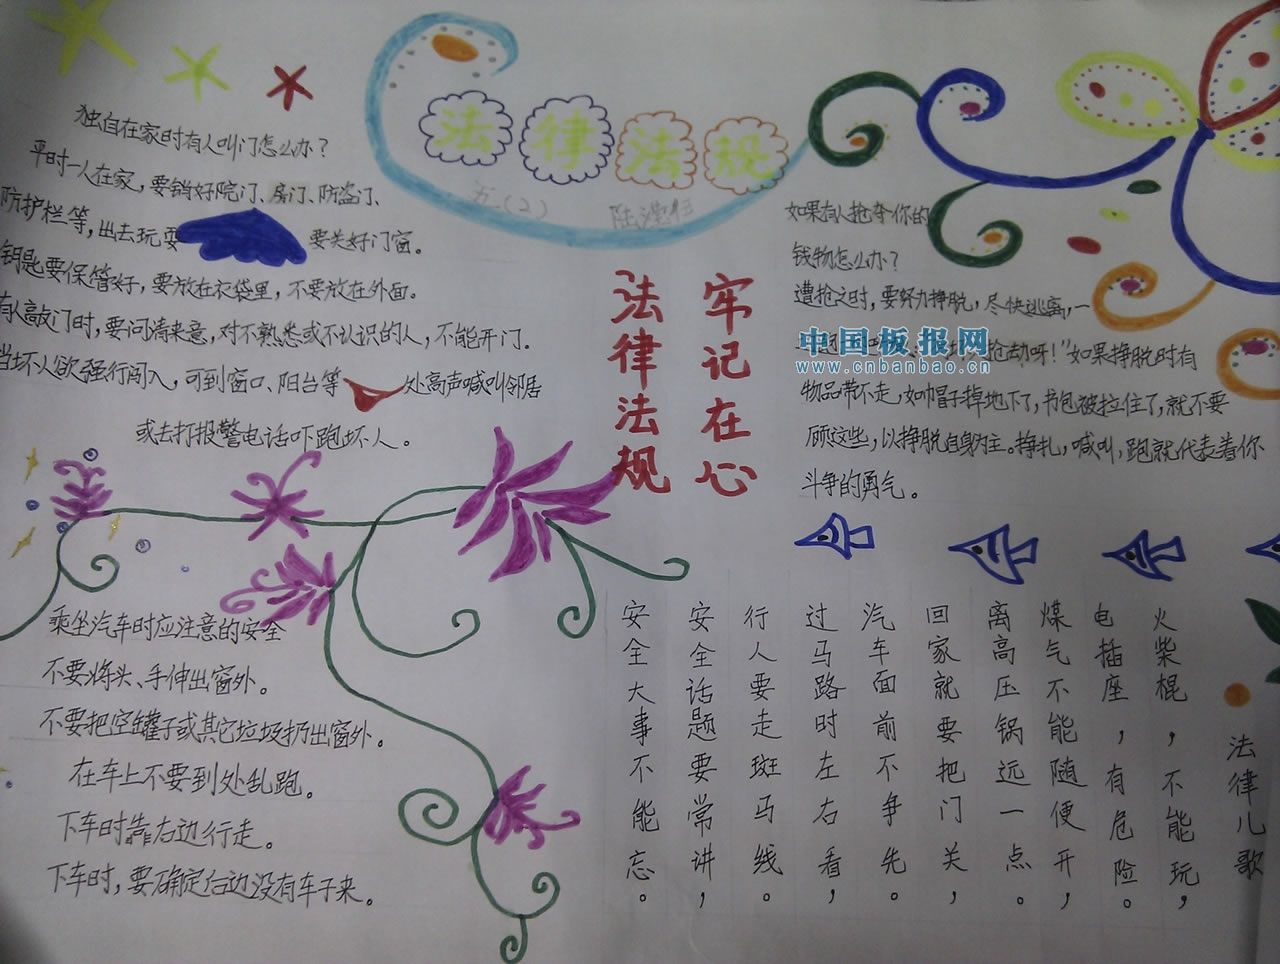 法律法规
五(2)
独自在家时有人叫门怎么办?
平时一人在家,要销好院门、房门、防盗门、
防护栏等,出去玩耍 要关好门窗。
钥匙要保管好,要放在衣袋里,不要放在外面。
有人敲门时,要问清来意,对不熟悉或不认识的人,不能开门。
当坏人欲强行闯入,可到窗口、阳台等 处高声喊叫邻居
或去打报警电话吓跑坏人。
牢记在心
法律法规
如果有人抢夺你的
钱物怎么办?
遭抢之时,要努力挣脱,尽快逃离,一
抢劫呀!"如果挣脱时有
物品带不走,如帽子掉地下了,书包被拉住了,就不要
顾这些,以挣脱自身为主。挣扎,喊叫,跑就代表着你
斗争的勇气。
中国板报网
www.cnbanbao.cn
乘坐汽车时应注意的安全
不要将头、手伸出窗外。
不要把空罐子或其它垃圾扔出窗外。
在车上不要到处乱跑。
下车时靠右边行走。
下车时,要确定右边没有车子来。
法律儿歌
火柴棍,不能玩,
电插座,有危险。
煤气不能随便开,
离高压锅远一点。
回家就要把门关,
汽车面前不争先。
过马路时左右看,
行人要走斑马线。
安全话题要常讲,
安全大事不能忘。